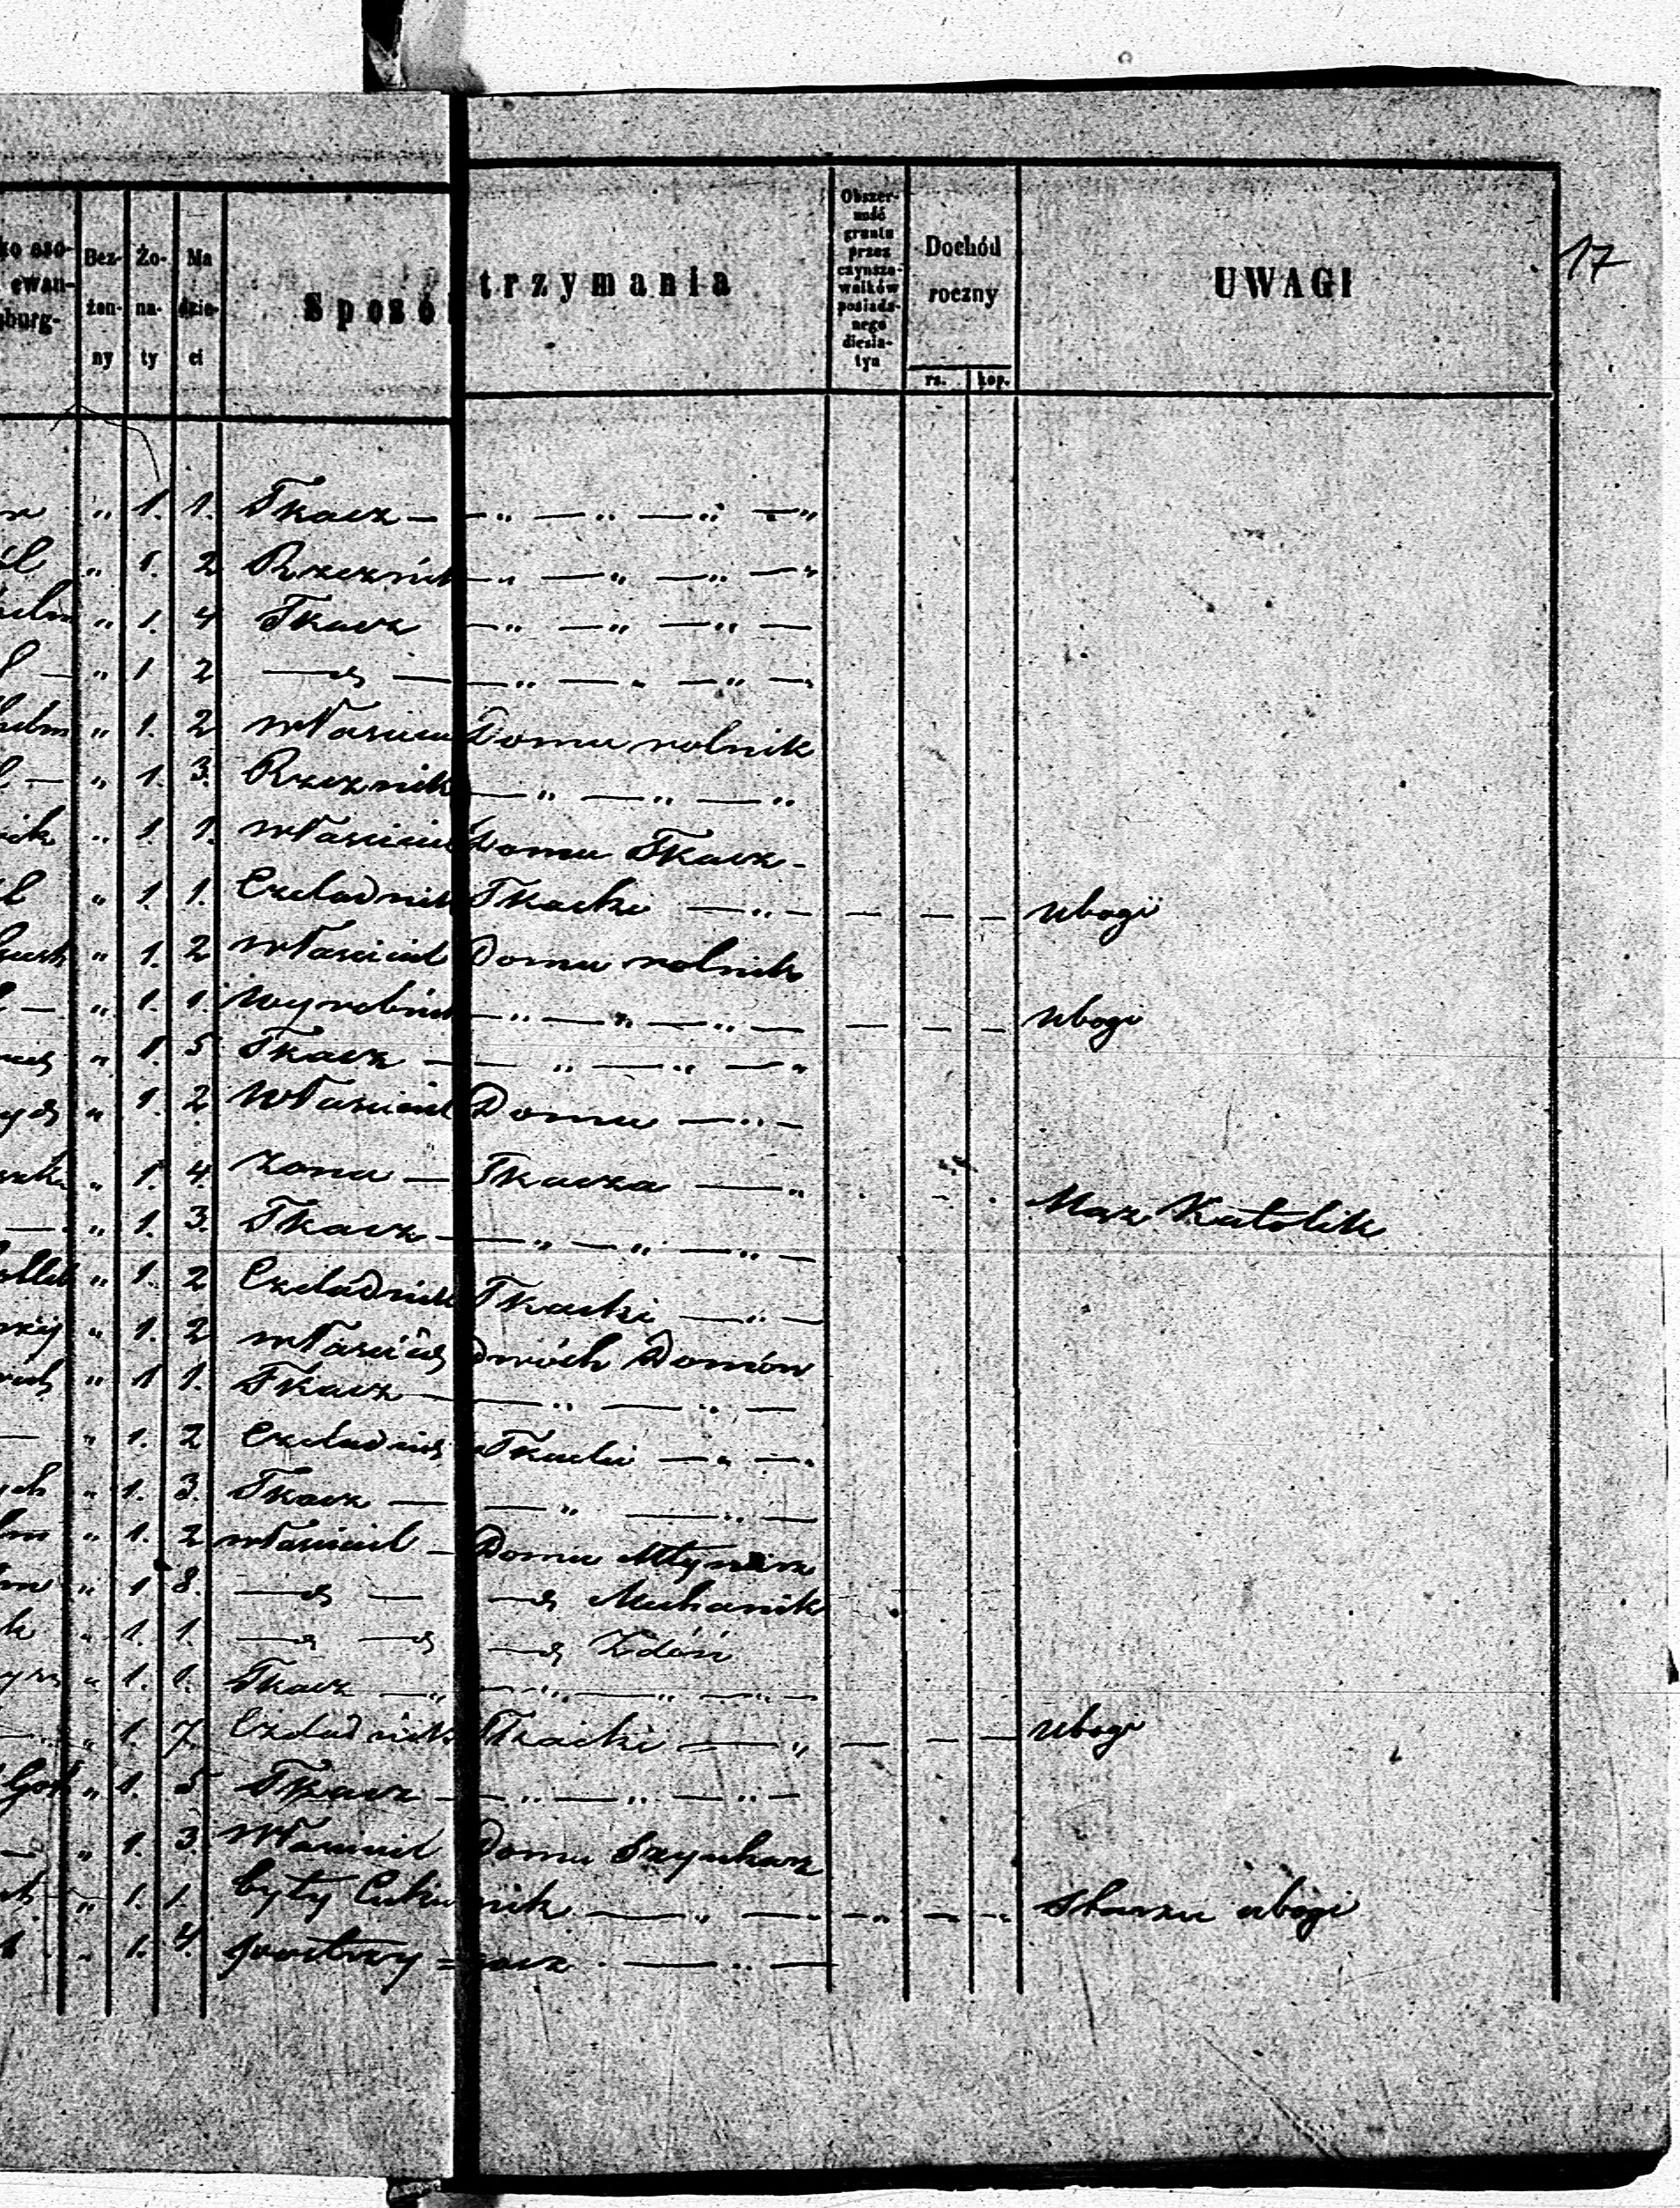 17
ko oso-
ewan-
sburg-
Bez-
żen-
ny
Żo-
na-
ty
Ma
dzie-
ci
Sposó
trzymania
Obszer-
ność
gruntu
przez
czynszo-
wników
posiada-
nego
diesia-
tyn
Dochód
roczny
rs. kop.
UWAGI
" 1. 1. Tkacz — — " — " — " — "
" 1. 2 Rzeznik — " — " — " — "
" 1. 4 Tkacz — " — " — " —
" 1 2 — — " — " — " — "
" 1. 2 własciciel Domu rolnik
" 1. 3. Rzeznik — " — " — "
" 1. 1. własciciel Domu Tkacz -
" 1. 1. Czeladnik Tkacki — " — — — — ubogi
" 1. 2 własciciel Domu rolnik
" 1. 1. Wyrobnik — " — " — " — — — — ubogi
" 1. 5 Tkacz — — " — " — "
" 1. 2 Własciciel Domu — " —
" 1. 4. Zona — Tkacza — " Maz Katolik
" 1. 3. Tkacz — — " — " — " —
" 1. 2 Czeladnik Tkacki — " —
" 1. 2 własciciel Dwóch Domów
" 1 1. Tkacz — — " — " —
" 1. 2 Czeladnik Tkacki — " — "
" 1. 3. Tkacz — — " — " —
" 1. 2 własciciel — Domu Młynarz
" 1 8. — — — Mechanik
" 1. 1. — — — Zdón
" 1. 1. Tkacz — " — " — " — " —
" 1. 7. Czeladnik Tkacki — " — — — ubogi
Gott " 1. 5 Tkacz — — " — " — " —
" 1. 3. Własciciel Domu Szynkarz
" 1. 1. były Cukiernik — " — " — " — " starzec ubogi
" 1. 4. — " —